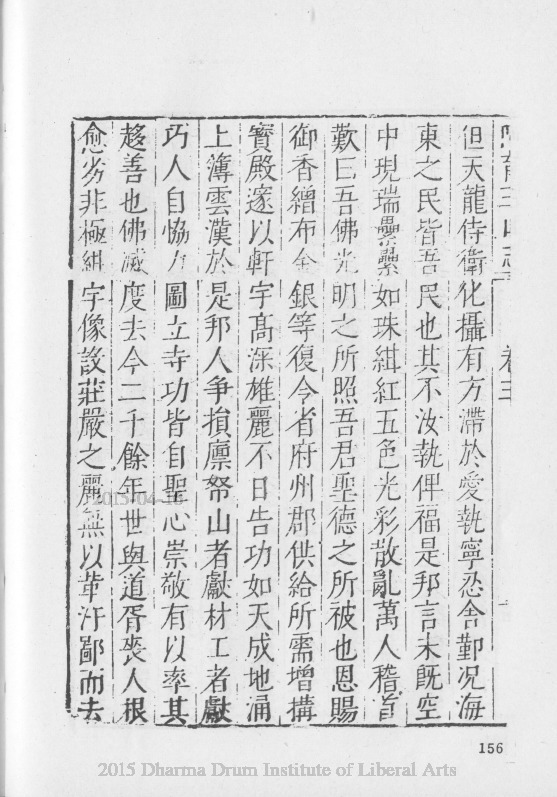 阿育王山志 卷三
但天龍侍衛化攝有方滯於愛執寧忍舍鄞况海
東之民皆吾民也其不汝執俾福是邦言未既空
中現瑞纍纍如珠紺紅五色光彩散亂萬人稽首
歎曰吾佛光明之所照吾君聖德之所被也恩賜
御香繒布金銀等復令省府州郡供給所需增搆
寳殿邃以軒宇髙深雄麗不日告功如天成地涌
上薄雲漢於是邦人争損廪帑山者獻材工者獻
巧人自恊力圖立寺功皆自聖心崇敬有以率其
趍善也佛滅度去今二千餘年世與道胥喪人根
愈劣非極紺宇像設莊嚴之麗無以革汙鄙而去
2015-04-16
156
2015 Dharma Drum Institute of Liberal Arts